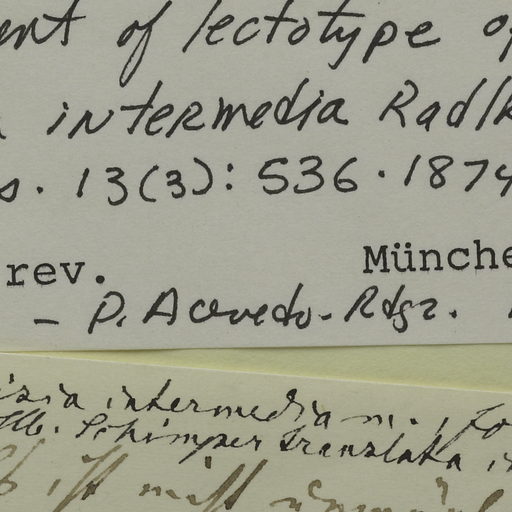 ent of lectotype of
intermedia Radlk
s. 13(3): 536. 1874
rev. Münche
- P. Acevedo-Rdgz.
izia intermedia m.,
Hb. Schimper translata
ist nicht